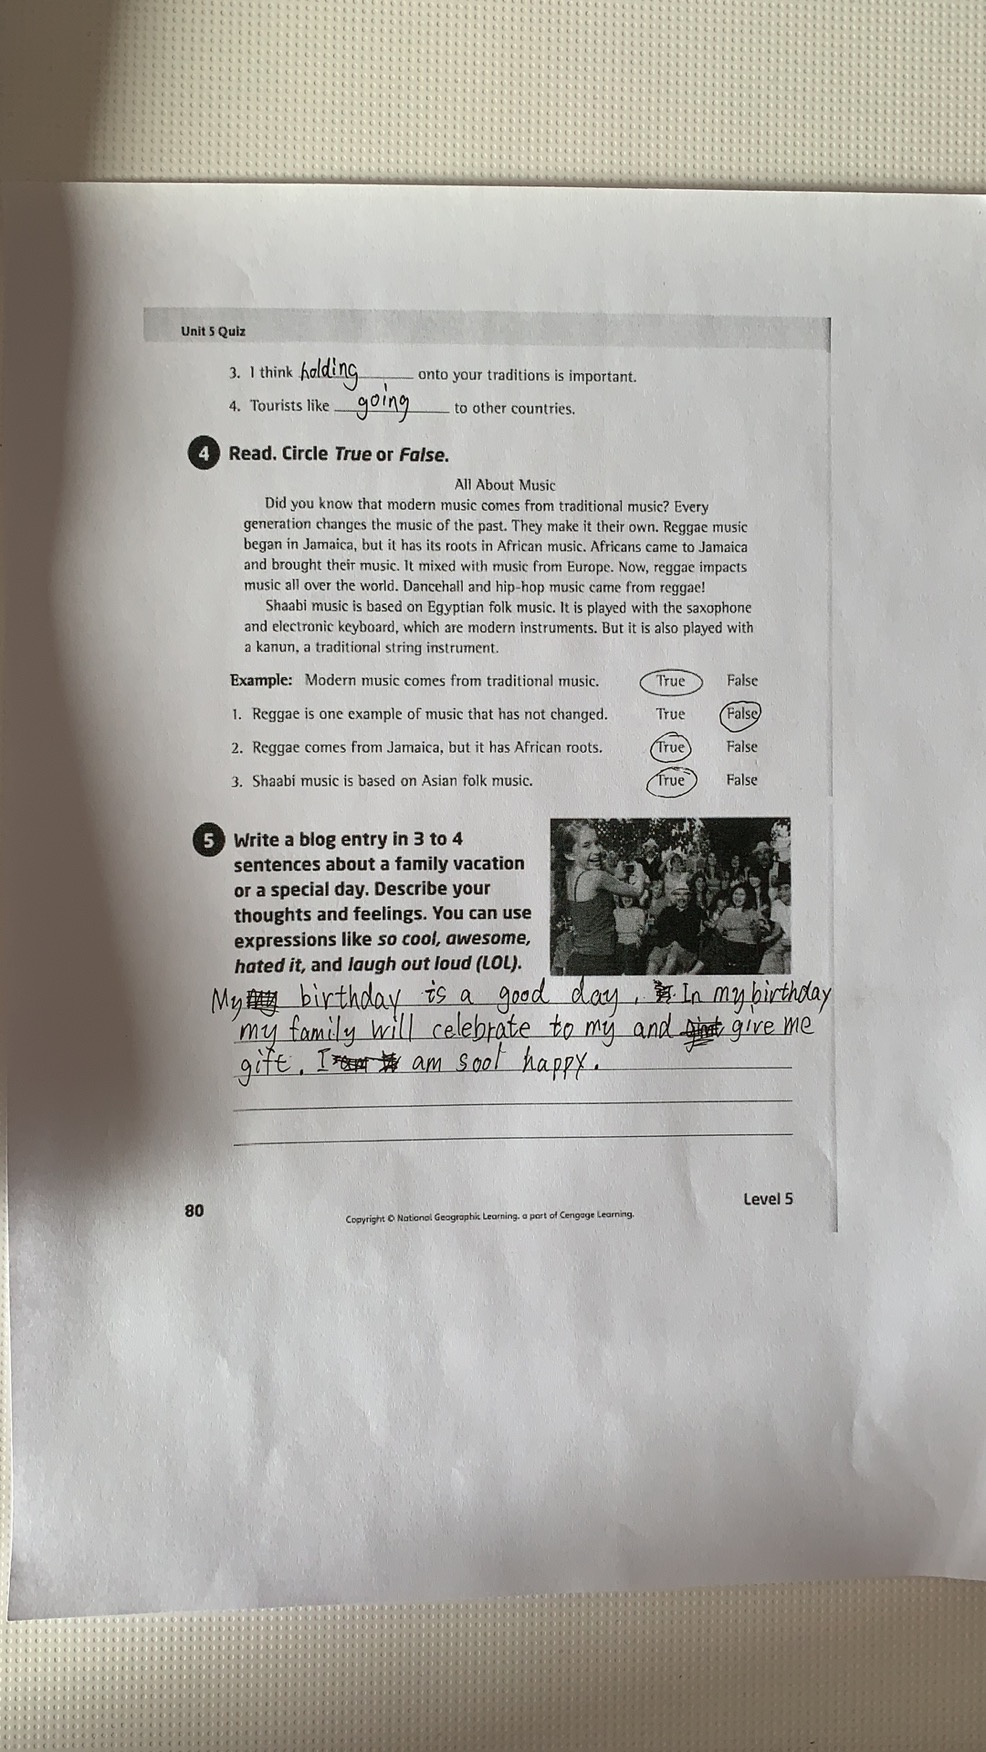 Unit 5 Quiz
3. I think holding onto your traditions is important.
4. Tourists like going to other countries.
4 Read. Circle True or False.
All About Music
Did you know that modern music comes from traditional music? Every
generation changes the music of the past. They make it their own. Reggae music
began in Jamaica, but it has its roots in African music. Africans came to Jamaica
and brought their music. It mixed with music from Europe. Now, reggae impacts
music all over the world. Dancehall and hip-hop music came from reggae!
Shaabi music is based on Egyptian folk music. It is played with the saxophone
and electronic keyboard, which are modern instruments. But it is also played with
a kanun, a traditional string instrument.
Example: Modern music comes from traditional music. True False
1. Reggae is one example of music that has not changed. True False
2. Reggae comes from Jamaica, but it has African roots. True False
3. Shaabi music is based on Asian folk music. True False
5 Write a blog entry in 3 to 4
sentences about a family vacation
or a special day. Describe your
thoughts and feelings. You can use
expressions like so cool, awesome,
hated it, and laugh out loud (LOL).
My birthday is a good day. In my birthday
my family will celebrate to my and give me
gift. I am soot happy.
80
Copyright © National Geographic Learning, a part of Cengage Learning.
Level 5